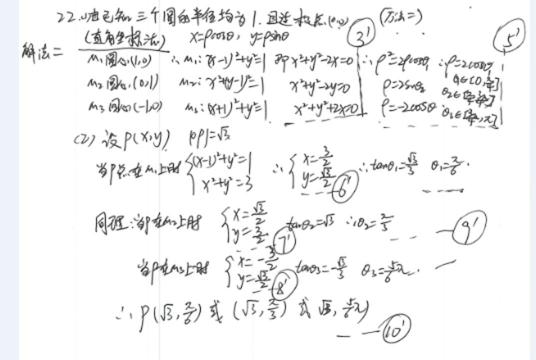 22. (1) 由已知三个圆的半径均为1.且过极点(0,0) (方法二)
解法二 (直角坐标法) x=ρcosθ, y=ρsinθ 3' 5'
M₁圆心(1,0) ∴M₁:(x-1)²+y²=1 即x²+y²-2x=0 ∴ρ²=2ρcosθ ∴ρ=2cosθ
M₂圆心(0,1) M₂: x²+(y-1)²=1 x²+y²-2y=0 ρ=2sinθ
M₃圆心(-1,0) M₃:(x+1)²+y²=1 x²+y²+2x=0 ρ=-2cosθ
(2) 设P(x,y) |OP|=√3
当P点在M₁上时 {(x-1)²+y²=1 x²+y²=3 ∴{x=3/2 y=√3/2 6' ∴tanθ₁=√3/3 θ₁=π/6.
同理:当P在M₂上时 {x=√3/2 y=3/2 7' tanθ₂=√3 ∴θ₂=π/3 9'
当P在M₃上时 {x=-3/2 y=√3/2 8' tanθ₃=-√3/3 θ₃=5/6π.
∴P(√3,π/6)或(√3,π/3)或(√3,5/6π)
10'